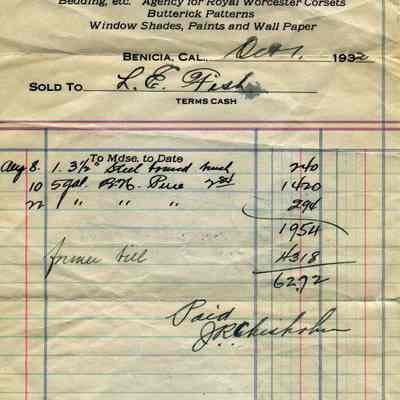 Bedding, etc. Agency for Royal Worcester Corsets
Butterick Patterns
Window Shades, Paints and Wall Paper
BENICIA, CAL., Oct 1. 1932
SOLD TO L. E. Fish
TERMS CASH
To Mdse. to Date
Aug 8. 1. 3½" Steel bound 240
10 5 gal. 284 1420
22 " " " 294
1954
former bill 4318
6272
Paid
J R Chisholm